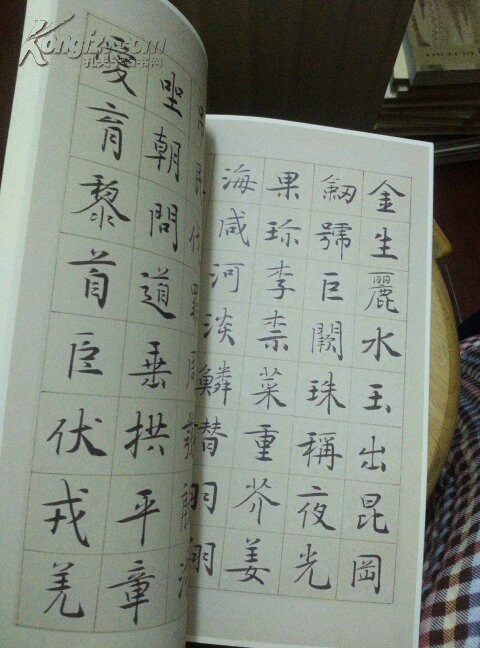 金生麗水玉出昆岡
劒號巨闕珠稱夜光
果珎李柰菜重芥姜
海咸河淡鱗潛羽翔
民伐周發
坐朝問道垂拱平章
愛育黎首臣伏戎羌
孔夫子旧书网